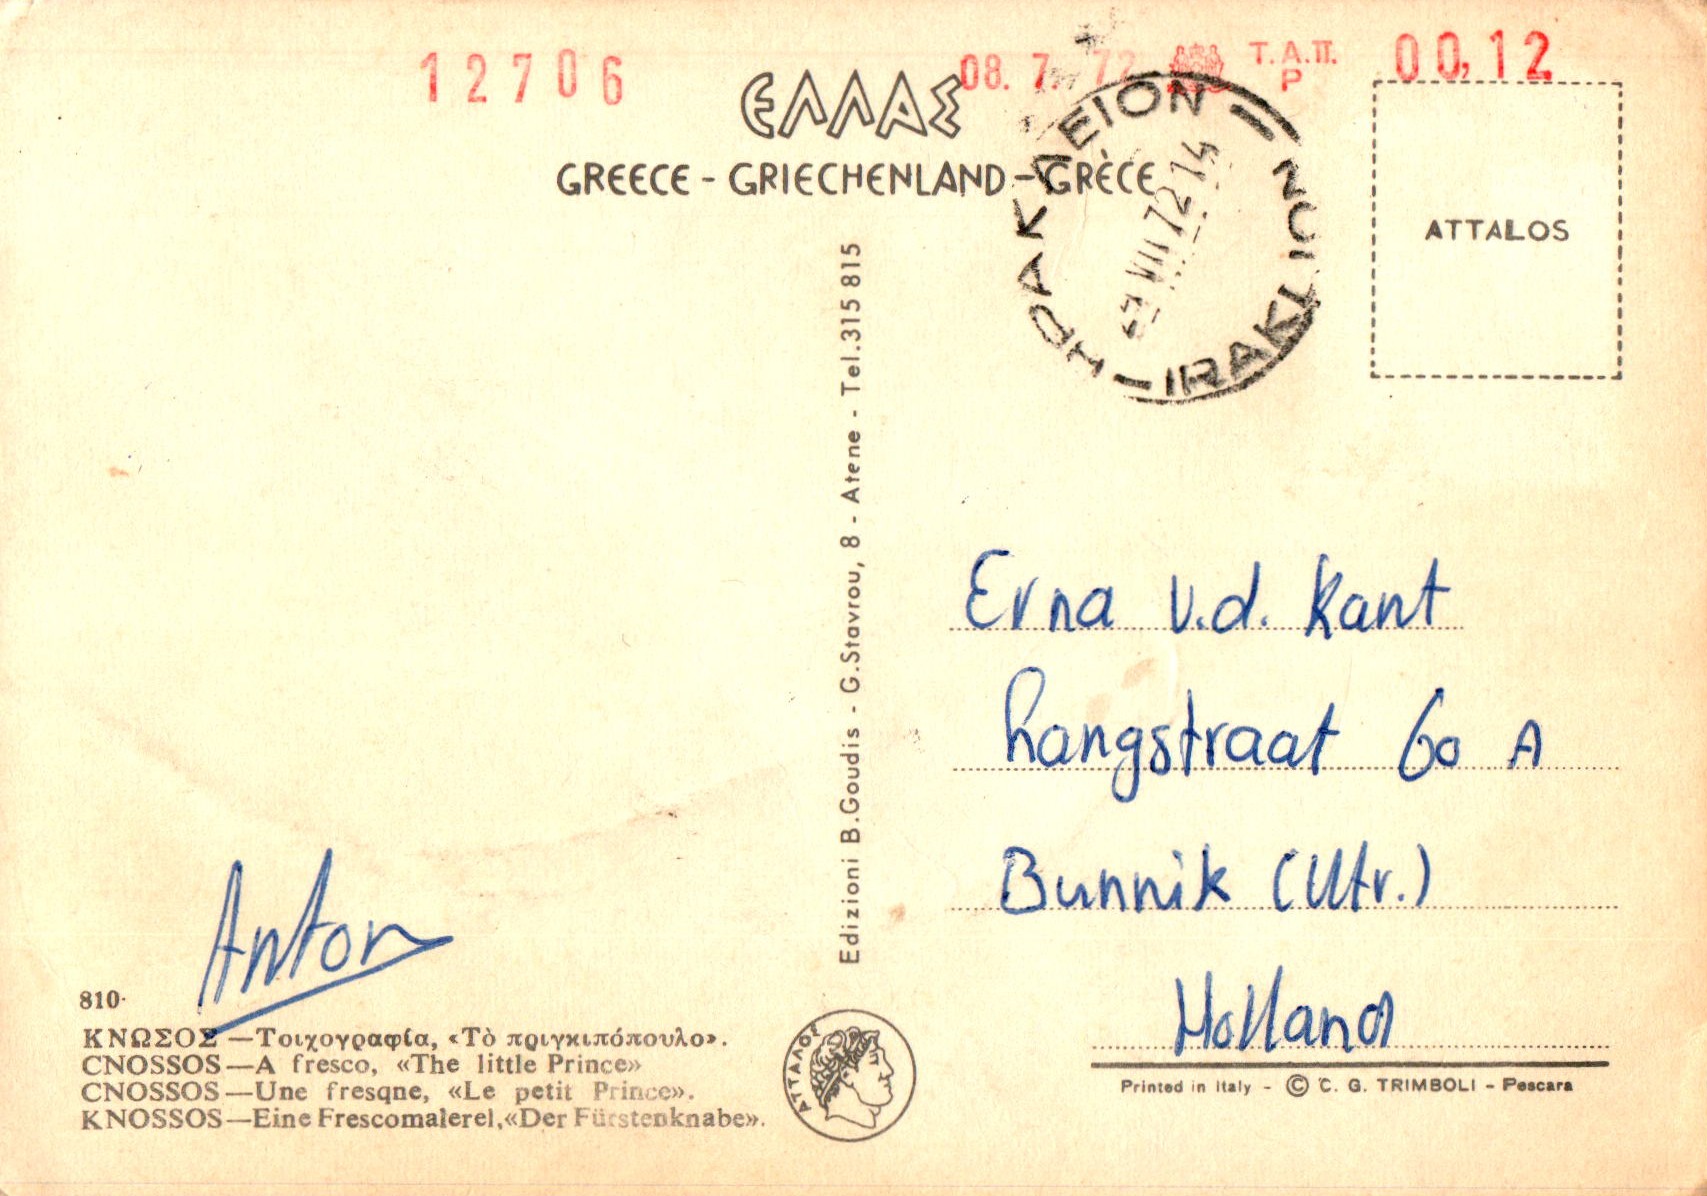 12706
08. 7. 72 Τ.Α.Π. 00,12
P
ΕΛΛΑΣ
GREECE - GRIECHENLAND - GRÈCE
ΗΡΑΚΛΕΙΟΝ
VII 72 14
IRAKLION
ATTALOS
Edizioni B.Goudis - G.Stavrou, 8 - Atene - Tel.315 815
Erna v.d. Kant
Langstraat 60 A
Bunnik (Utr.)
Holland
Anton
810·
ΚΝΩΣΟΣ—Τοιχογραφία, «Τὸ πριγκιπόπουλο».
CNOSSOS—A fresco, «The little Prince»
CNOSSOS—Une fresqne, «Le petit Prince».
KNOSSOS—Eine Frescomalerel,«Der Fürstenknabe».
ΑΤΤΑΛΟΣ
Printed in Italy - © C. G. TRIMBOLI - Pescara